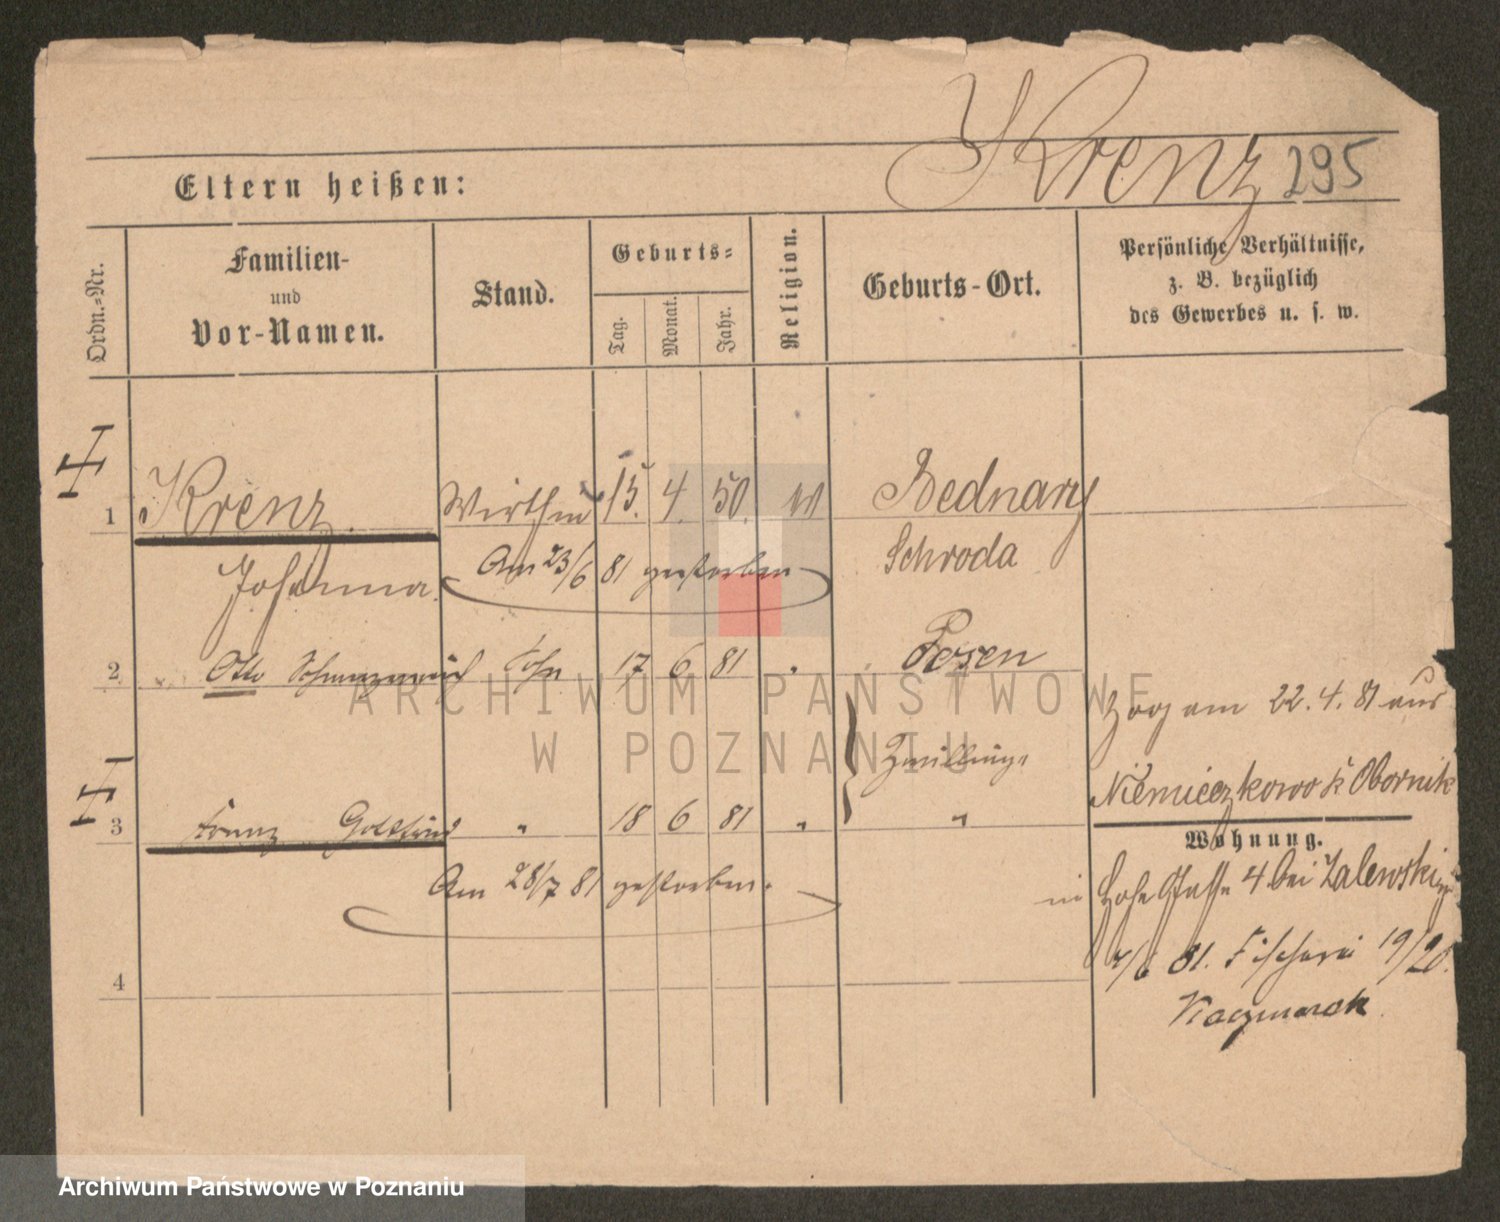 Krenz 295
Eltern heißen:
Ordn.=Nr.
Familien-
und
Vor-Namen.
Stand.
Geburts=
Tag.
Monat.
Jahr.
Religion.
Geburts-Ort.
Persönliche Verhältnisse,
z. B. bezüglich
des Gewerbes u. s. w.
1 Krenz. Wirthin 15. 4. 50. Bednary
Johanna. Am 23/6 81 gestorben Schroda
2 Otto Sohn 17 6 81 " Posen
zog am 22. 4. 81 aus
Zwillinge
Niemieczkowo Kr Obornik
3 Franz Gottfried " 18 6 81 " "
Wohnung.
Am 28/7 81 gestorben.
in Hohe Gasse 4 bei Zalewski
4
7/6 81. Fischerei 19/20.
Kaczmarek
ARCHIWUM PAŃSTWOWE
W POZNANIU
Archiwum Państwowe w Poznaniu